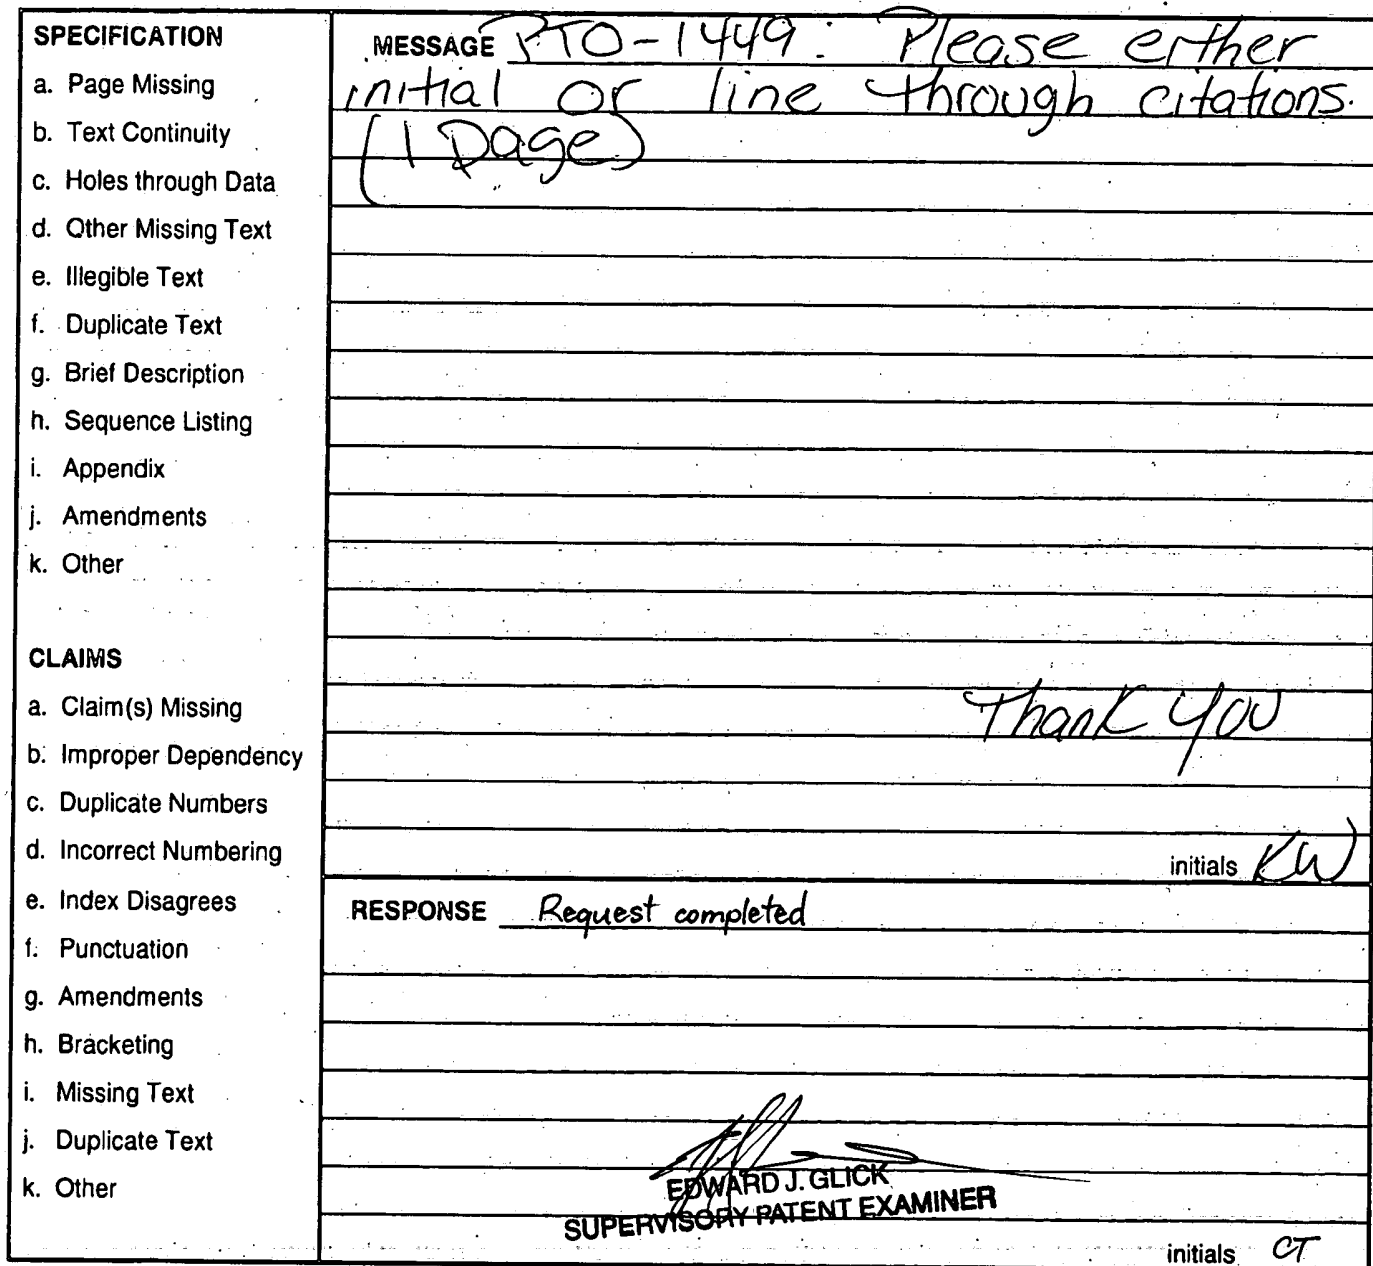 SPECIFICATION
a. Page Missing
b. Text Continuity
c. Holes through Data
d. Other Missing Text
e. Illegible Text
f. Duplicate Text
g. Brief Description
h. Sequence Listing
i. Appendix
j. Amendments
k. Other
CLAIMS
a. Claim(s) Missing
b. Improper Dependency
c. Duplicate Numbers
d. Incorrect Numbering
e. Index Disagrees
f. Punctuation
g. Amendments
h. Bracketing
i. Missing Text
j. Duplicate Text
k. Other
MESSAGE PTO-1449: Please either
initial or line through citations.
(1 page)
Thank You
initials KW
RESPONSE Request completed
EDWARD J. GLICK
SUPERVISORY PATENT EXAMINER
initials CT